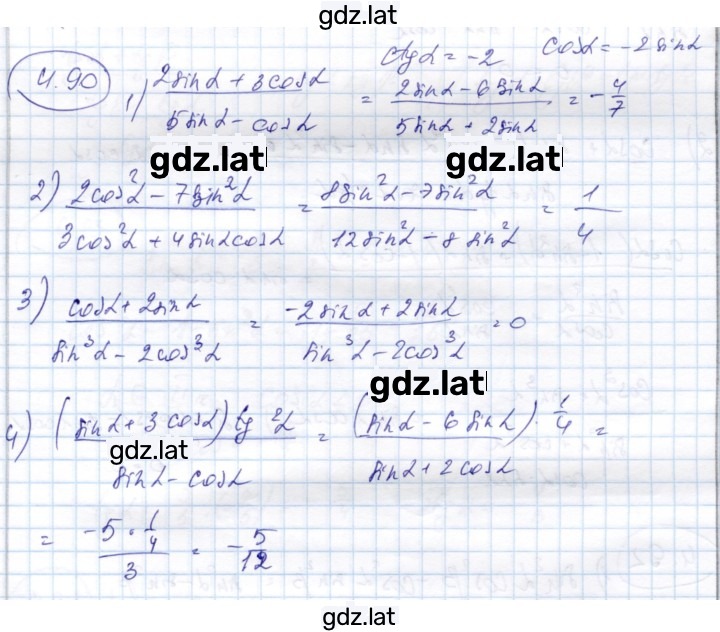 gdz.lat
ctgα = -2   cosα = -2sinα
4.90
1) (2sinα + 3cosα)/(5sinα - cosα) = (2sinα - 6sinα)/(5sinα + 2sinα) = -4/7
gdz.lat
2) (2cos²α - 7sin²α)/(3cos²α + 4sinαcosα) = (8sin²α - 7sin²α)/(12sin²α - 8sin²α) = 1/4
3) (cosα + 2sinα)/(sin³α - 2cos³α) = (-2sinα + 2sinα)/(sin³α - 2cos³α) = 0
gdz.lat
4) (sinα + 3cosα)tg²α/(sinα - cosα) = (sinα - 6sinα)·1/4/(sinα + 2cosα) =
gdz.lat
= (-5·1/4)/3 = -5/12
gdz.lat